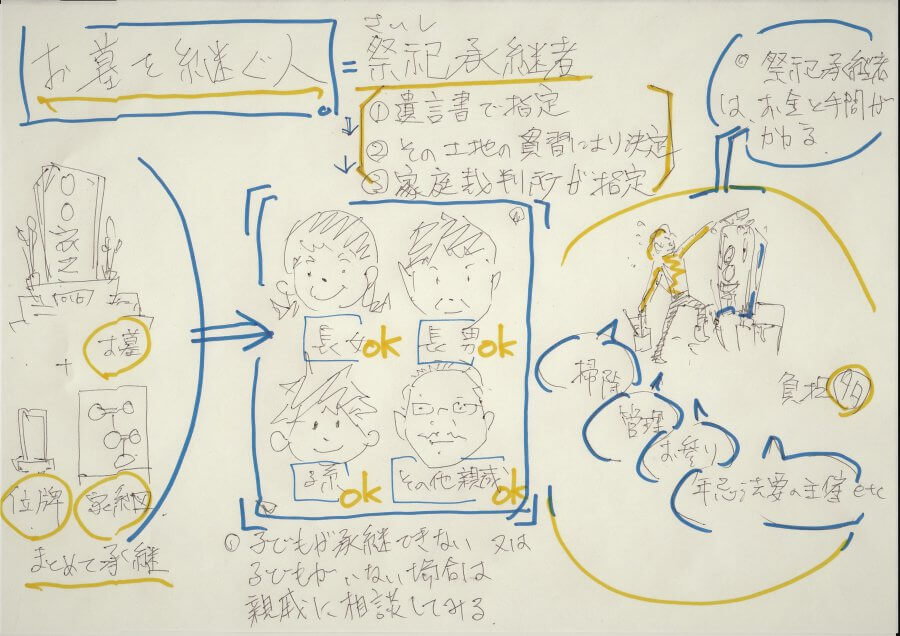 お墓を継ぐ人
=
さいし
祭祀承継者
①遺言書で指定
②その土地の貫習により決定
③家庭裁判所が指定
◎祭祀承継者
は、お金と手間が
かかる
お墓
+
位牌
家系図
まとめて承継
長女 ok
長男 ok
子孫 ok
その他親戚 ok
①子どもが承継できない 又は
子どもがいない場合は
親戚に相談してみる
掃除
管理
お参り
年忌法要の主催 etc
負担 多